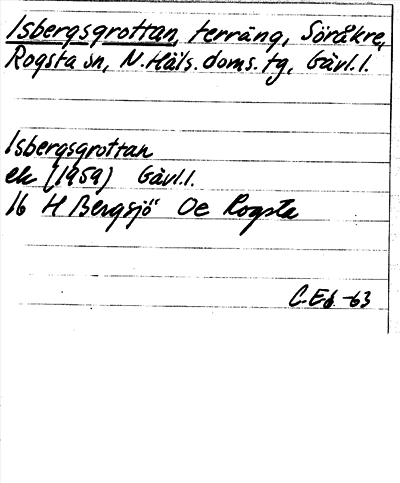 Isbergsgrottan, terräng, Söråkre,
Rogsta sn, N. Häls. doms. tg, Gävl. l.
Isbergsgrottan
ek (1959) Gävl. l.
16 H Bergsjö Oe Rogsta
C. Eb. -63